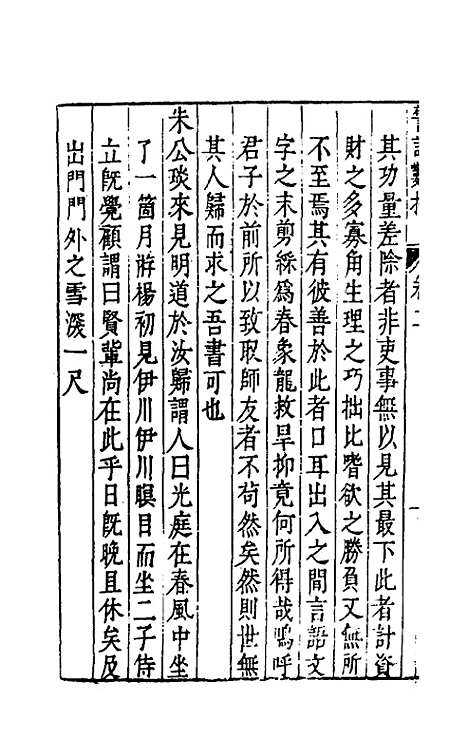 其功量差除者非吏事無以見其最下此者計資
財之多寡角生理之巧拙比嗜欲之勝負又無所
不至焉其有彼善於此者口耳出入之間言語文
字之末剪綵爲春象龍救旱抑竟何所得哉嗚呼
君子於前所以致取師友者不苟然矣然則世無
其人歸而求之吾書可也
朱公琰來見明道於汝歸謂人曰光庭在春風中坐
了一箇月游楊初見伊川伊川瞑目而坐二子侍
立旣覺顧謂曰賢輩尚在此乎日旣晚且休矣及
出門門外之雪深一尺